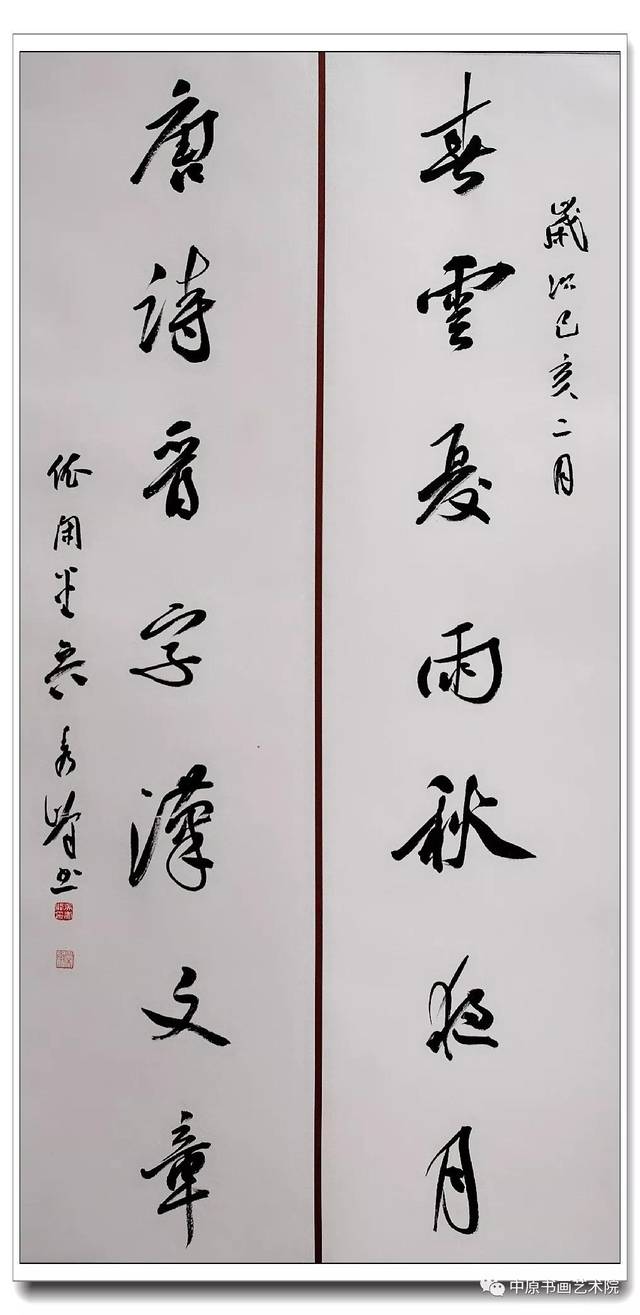 歲次己亥二月
春雲夏雨秋夜月
唐詩晉字漢文章
秀峰书
中原书画艺术院